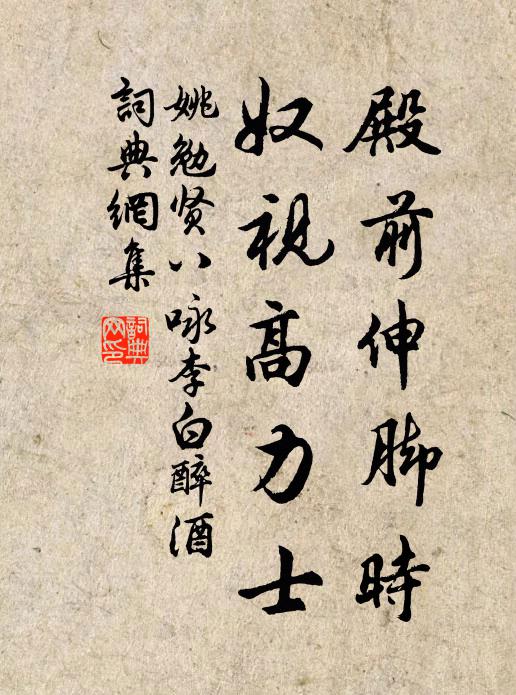 殿前伸脚時
奴視高力士
姚勉贤八咏李白醉酒
詞典網集
詞典网印